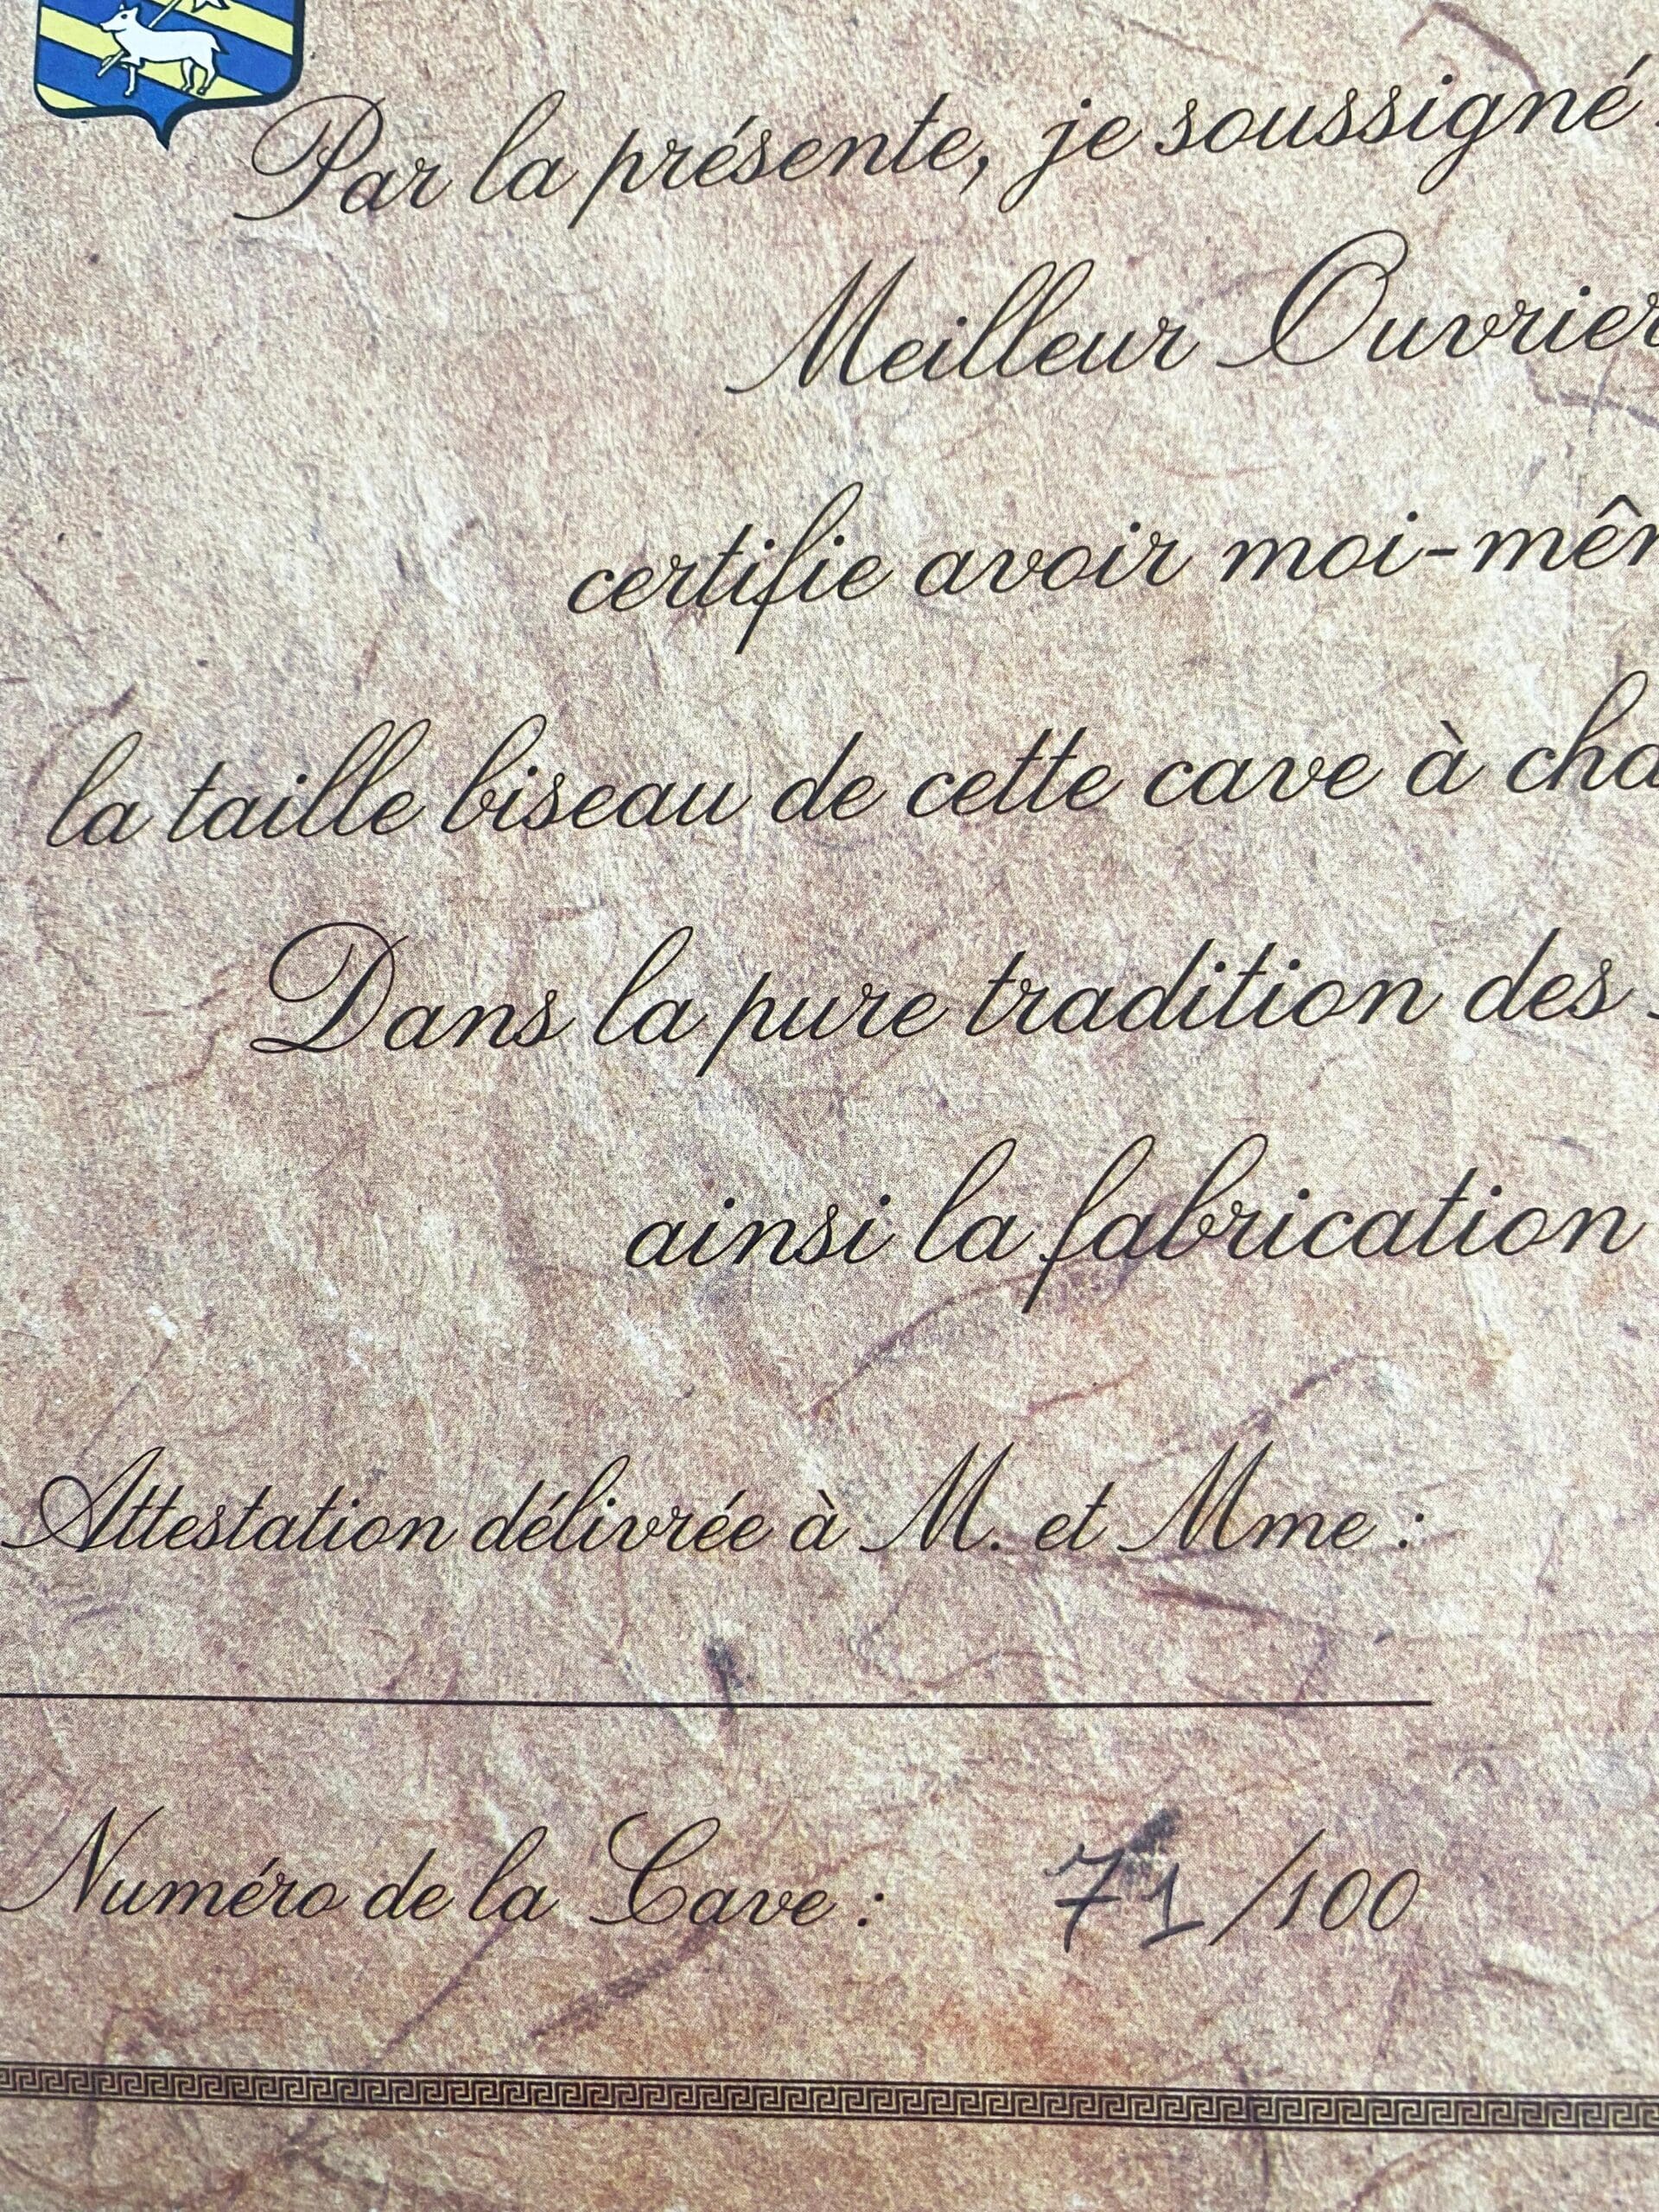 Par la présente, je soussigné
Meilleur Ouvrier
certifie avoir moi-mêm
la taille biseau de cette cave à cha
Dans la pure tradition des
ainsi la fabrication
Attestation délivrée à M. et Mme :
Numéro de la Cave : 71 /100